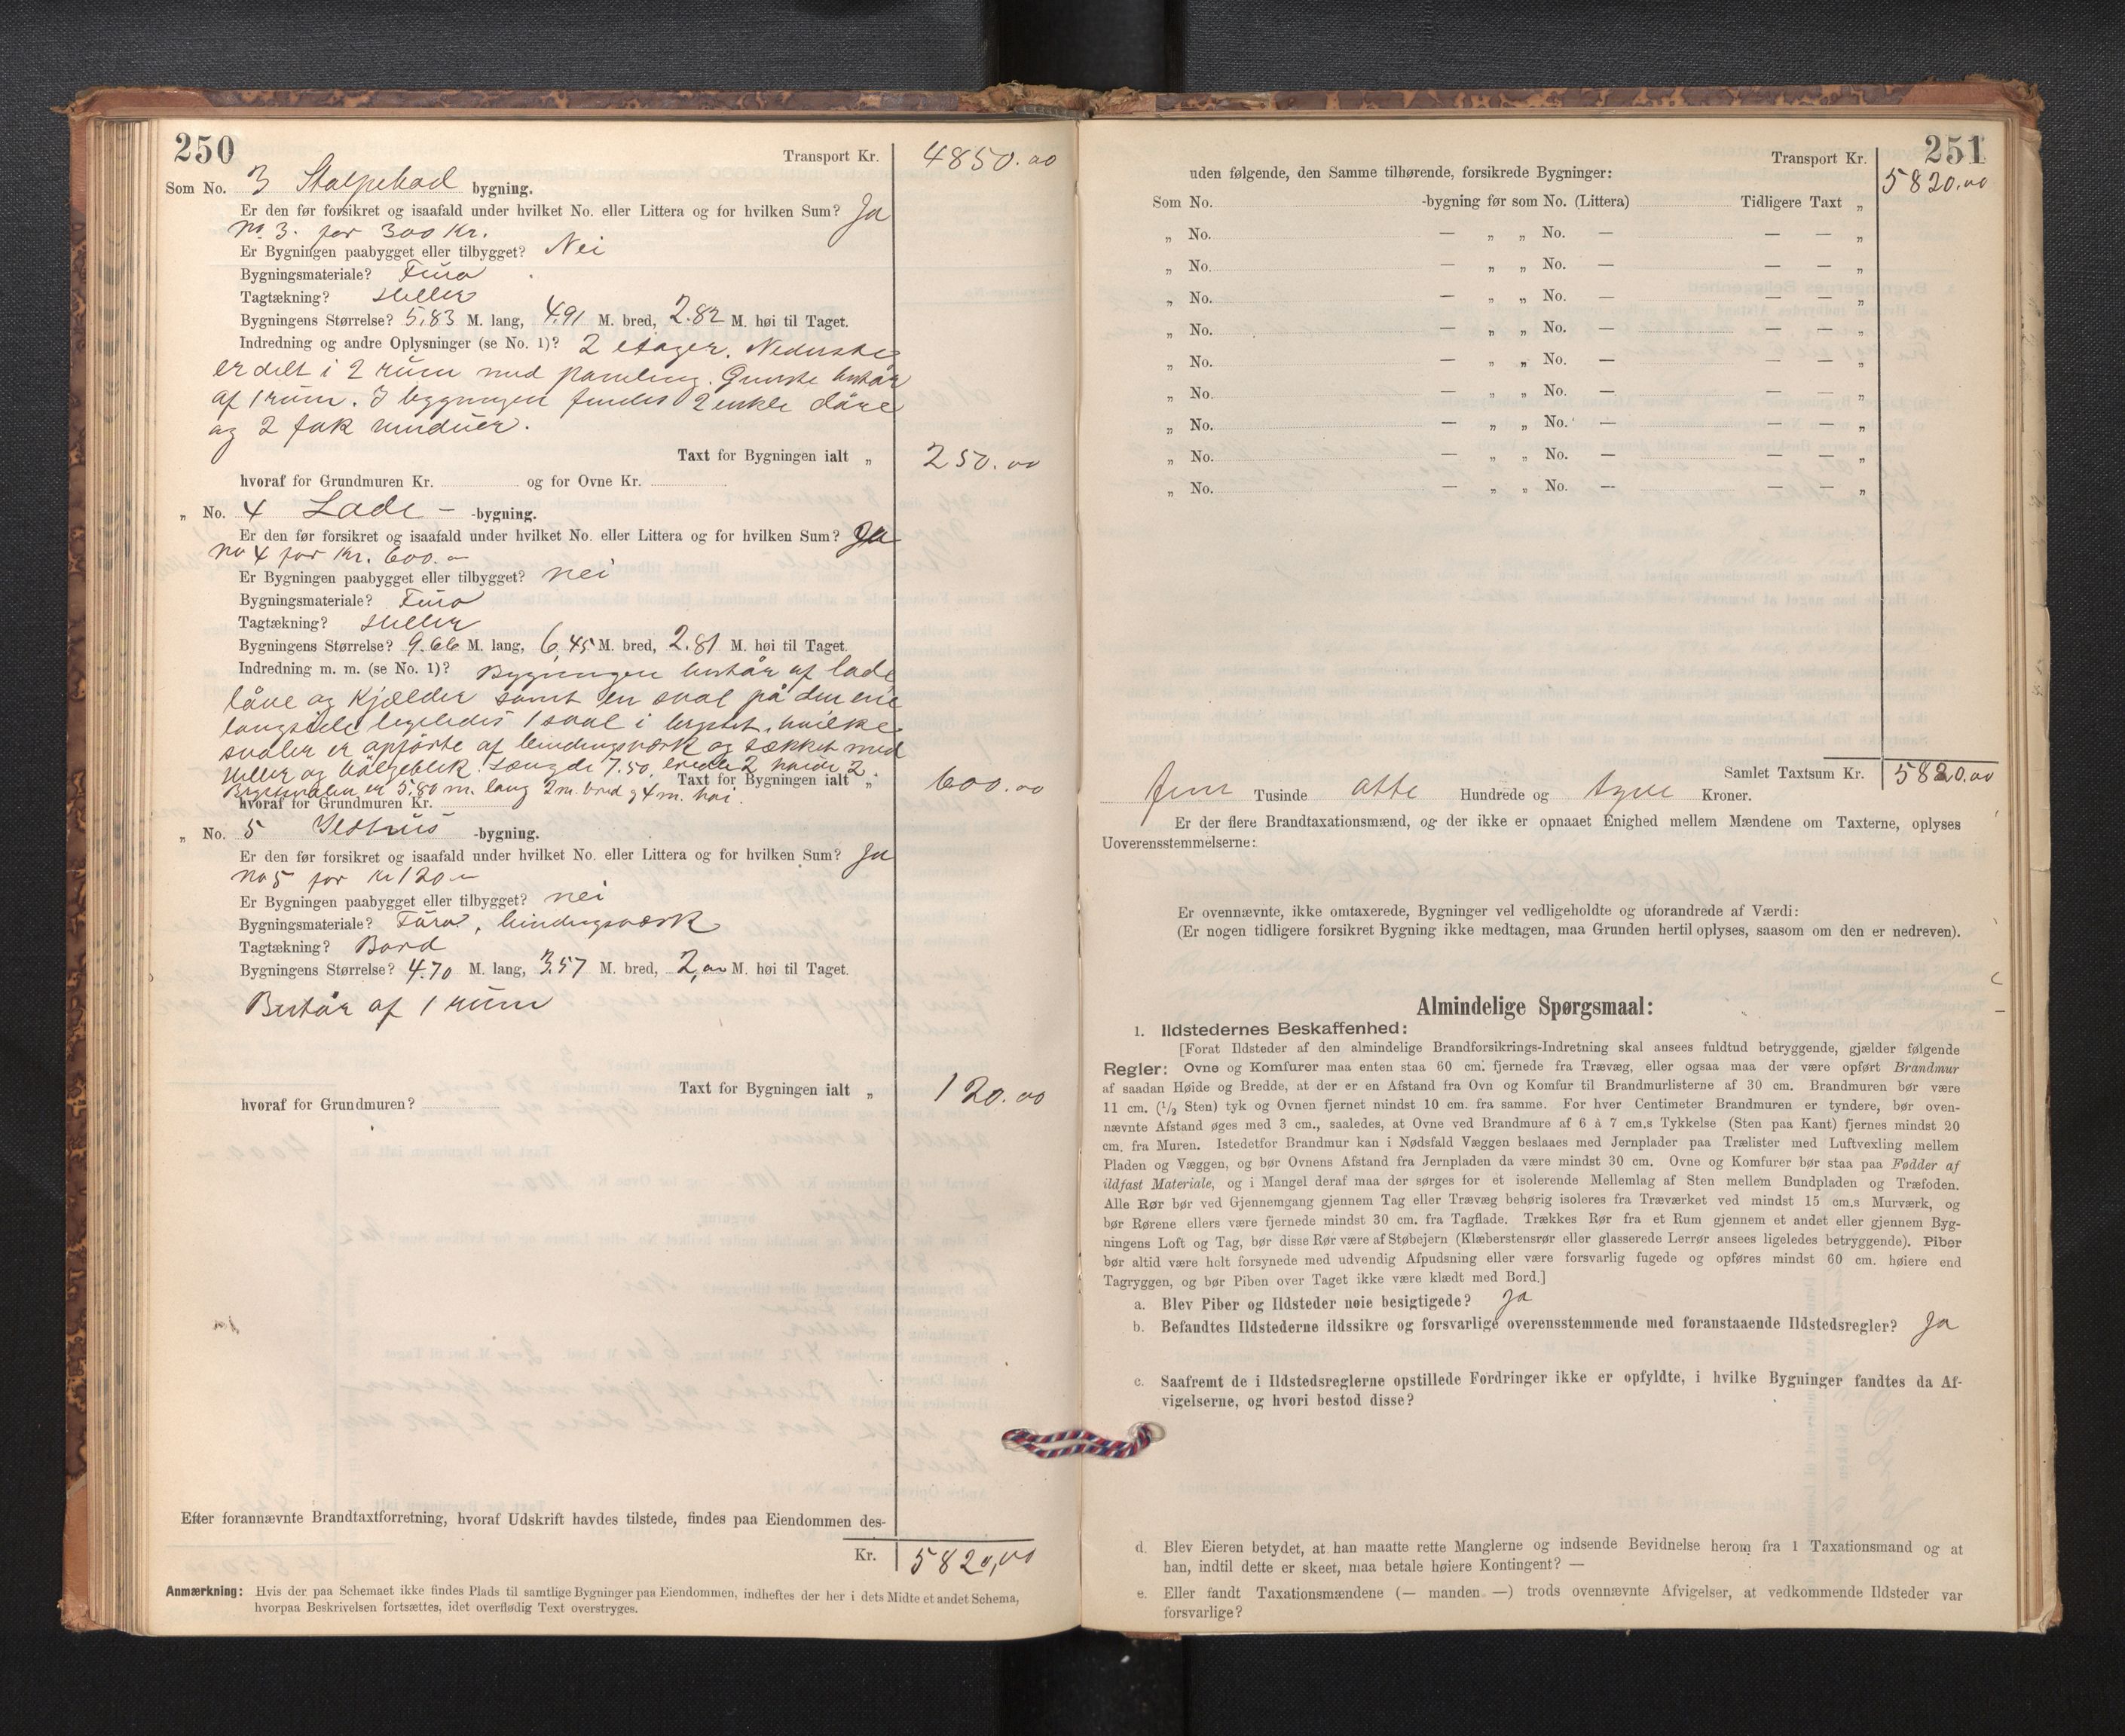 250
Transport Kr. 4850.00
Som No. 3 Stolpebod bygning.
Er den før forsikret og isaafald under hvilket No. eller Littera og for hvilken Sum? Ja
No 3. for 300 Kr.
Er Bygningen paabygget eller tilbygget? Nei
Bygningsmateriale? Furu
Tagtækning? Heller
Bygningens Størrelse? 5,83 M. lang, 4.91 M. bred, 2.82 M. høi til Taget.
Indredning og andre Oplysninger (se No. 1)? 2 etager. Nederste
er delt i 2 rum med paneling. Øverste består
af 1 rum. I bygningen findes 2 enkle døre
og 2 fak vinduer.
Taxt for Bygningen ialt „ 250.00
hvoraf for Grundmuren Kr. og for Ovne Kr.
„ No. 4 Lade - -bygning.
Er den før forsikret og isaafald under hvilket No. eller Littera og for hvilken Sum? Ja
No 4 for Kr. 600.-
Er Bygningen paabygget eller tilbygget? nei
Bygningsmateriale? Furu
Tagtækning? Heller
Bygningens Størrelse? 9.66 M. lang, 6,45 M. bred, 2.81 M. høi til Taget.
Indredning m. m. (se No. 1)? Bygningen består af lade
låve og Kjælder samt en sval på den ene
langside ligeledes 1 sval i brystet, hvilke
svaler er opførte af bindingsværk og tækket med
Heller og bølgeblik. Længde 7.50, bredde 2 høide 2.
Taxt for Bygningen ialt „ 600.00
Brystsvalen er 5,80 m. lang 2 m. bred og 4 m. høi.
hvoraf for Grundmuren Kr.
„ No. 5 Ildhus -bygning.
Er den før forsikret og isaafald under hvilket No. eller Littera og for hvilken Sum? Ja
No 5 for Kr 120 -
Er Bygningen paabygget eller tilbygget? nei
Bygningsmateriale? Furu, bindingsværk
Tagtækning? Bord
Bygningens Størrelse? 4.70 M. lang, 3,57 M. bred, 2,00 M. høi til Taget.
Består af 1 rum
Taxt for Bygningen ialt „ 120.00
hvoraf for Grundmuren?
Efter forannævnte Brandtaxtforretning, hvoraf Udskrift havdes tilstede, findes paa Eiendommen des-
Kr. 5820,00
Anmærkning: Hvis der paa Schemaet ikke findes Plads til samtlige Bygninger paa Eiendommen, indheftes der her i dets Midte et andet Schema,
hvorpaa Beskrivelsen fortsættes, idet overflødig Text overstryges.
251
Transport Kr. 5820.00
uden følgende, den Samme tilhørende, forsikrede Bygninger:
Som No. -bygning før som No. (Littera) Tidligere Taxt „
„ No. — „ „ No. — — — „
„ No. — „ „ No. — — — „
„ No. — „ „ No. — — — „
„ No. — „ „ No. — — — „
„ No. — „ „ No. — — — „
„ No. — „ „ No. — — — „
„ No. — „ „ No. — — — „
„ No. — „ „ No. — — — „
„ No. — „ „ No. — — — „
Samlet Taxtsum Kr. 5820.00
fem Tusinde otte Hundrede og tyve Kroner.
Er der flere Brandtaxationsmænd, og der ikke er opnaaet Enighed mellem Mændene om Taxterne, oplyses
Uoverensstemmelserne:
Er ovennævnte, ikke omtaxerede, Bygninger vel vedligeholdte og uforandrede af Værdi:
(Er nogen tidligere forsikret Bygning ikke medtagen, maa Grunden hertil oplyses, saasom om den er nedreven).
Almindelige Spørgsmaal:
1. Ildstedernes Beskaffenhed:
[Forat Ildsteder af den almindelige Brandforsikrings-Indretning skal ansees fuldtud betryggende, gjælder følgende
Regler: Ovne og Komfurer maa enten staa 60 cm. fjernede fra Trævæg, eller ogsaa maa der være opført Brandmur
af saadan Høide og Bredde, at der er en Afstand fra Ovn og Komfur til Brandmurlisterne af 30 cm. Brandmuren bør være
11 cm. (1/2 Sten) tyk og Ovnen fjernet mindst 10 cm. fra samme. For hver Centimeter Brandmuren er tyndere, bør oven-
nævnte Afstand øges med 3 cm., saaledes, at Ovne ved Brandmure af 6 à 7 cm.s Tykkelse (Sten paa Kant) fjernes mindst 20
cm. fra Muren. Istedetfor Brandmur kan i Nødsfald Væggen beslaaes med Jernplader paa Trælister med Luftvexling mellem
Pladen og Væggen, og bør Ovnens Afstand fra Jernpladen da være mindst 30 cm. Ovne og Komfurer bør staa paa Fødder af
ildfast Materiale, og i Mangel deraf maa der sørges for et isolerende Mellemlag af Sten mellem Bundpladen og Træfoden.
Alle Rør bør ved Gjennemgang gjennem Tag eller Trævæg behørig isoleres fra Træværket ved mindst 15 cm.s Murværk, og
bør Rørene ellers være fjernede mindst 30 cm. fra Tagflade. Trækkes Rør fra et Rum gjennem et andet eller gjennem Byg-
ningens Loft og Tag, bør disse Rør være af Støbejern (Klæberstensrør eller glasserede Lerrør ansees ligeledes betryggende). Piber
bør altid være helt forsynede med udvendig Afpudsning eller være forsvarlig fugede og opføres mindst 60 cm. høiere end
Tagryggen, og bør Piben over Taget ikke være klædt med Bord.]
a. Blev Piber og Ildsteder nøie besigtigede? Ja
b. Befandtes Ildstederne ildssikre og forsvarlige overensstemmende med foranstaaende Ildstedsregler? Ja
c. Saafremt de i Ildstedsreglerne opstillede Fordringer ikke er opfyldte, i hvilke Bygninger fandtes da Af-
vigelserne, og hvori bestod disse?
d. Blev Eieren betydet, at han maatte rette Manglerne og indsende Bevidnelse herom fra 1 Taxationsmand og at
han, indtil dette er skeet, maa betale høiere Kontingent? —
e. Eller fandt Taxationsmændene (— manden —) trods ovennævnte Afvigelser, at vedkommende Ildsteder var
forsvarlige?